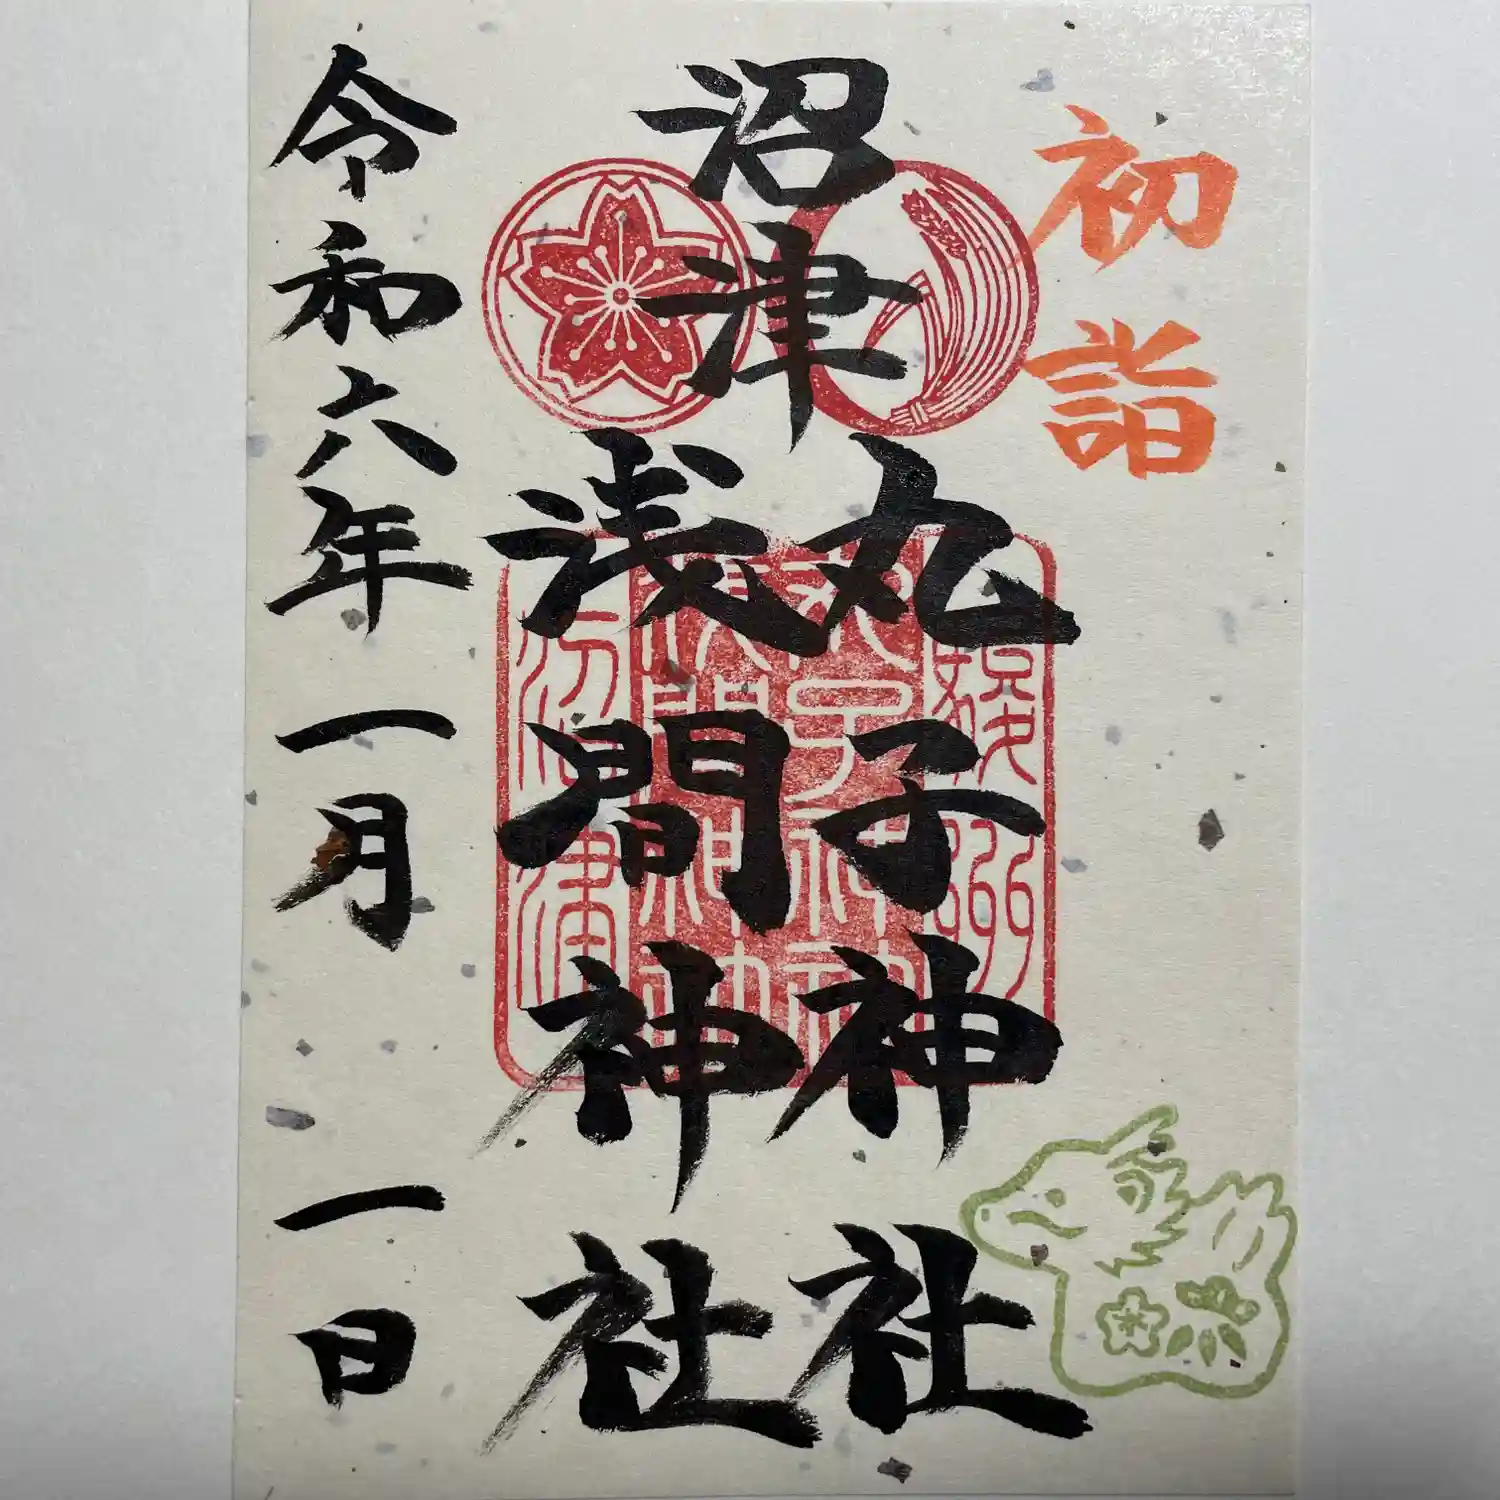 初詣
沼津
丸子神社
浅間神社
令和六年一月一日